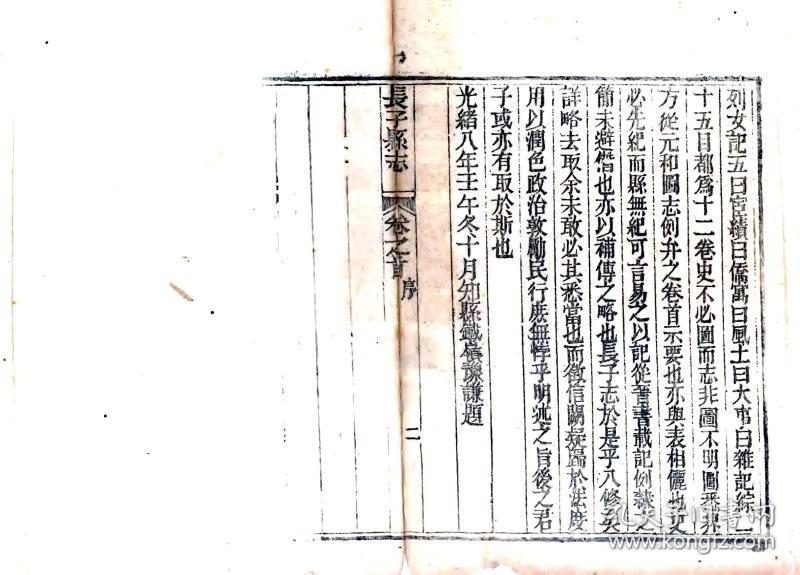 列女記五曰宦績曰僑寓曰風土曰大事曰雜記綜二
十五目都爲十二卷史不必圖而志非圖不明圖悉界
方從元和圖志例弁之卷首示要也亦與表相儷也史
必先紀而縣無紀可言易之以記從晉書載記例隸之
簡未避僭也亦以補傳之略也長子志於是乎八修矣
詳略去取余未敢必其悉當也而徵信闕疑歸於法度
用以潤色政治敦勵民行庶無悖乎明述之旨後之君
子或亦有取於斯也
光緒八年壬午冬十月知縣鐵嶺豫謙題
長子縣志
卷之首
序
二
孔夫子旧书网
www.kongfz.com